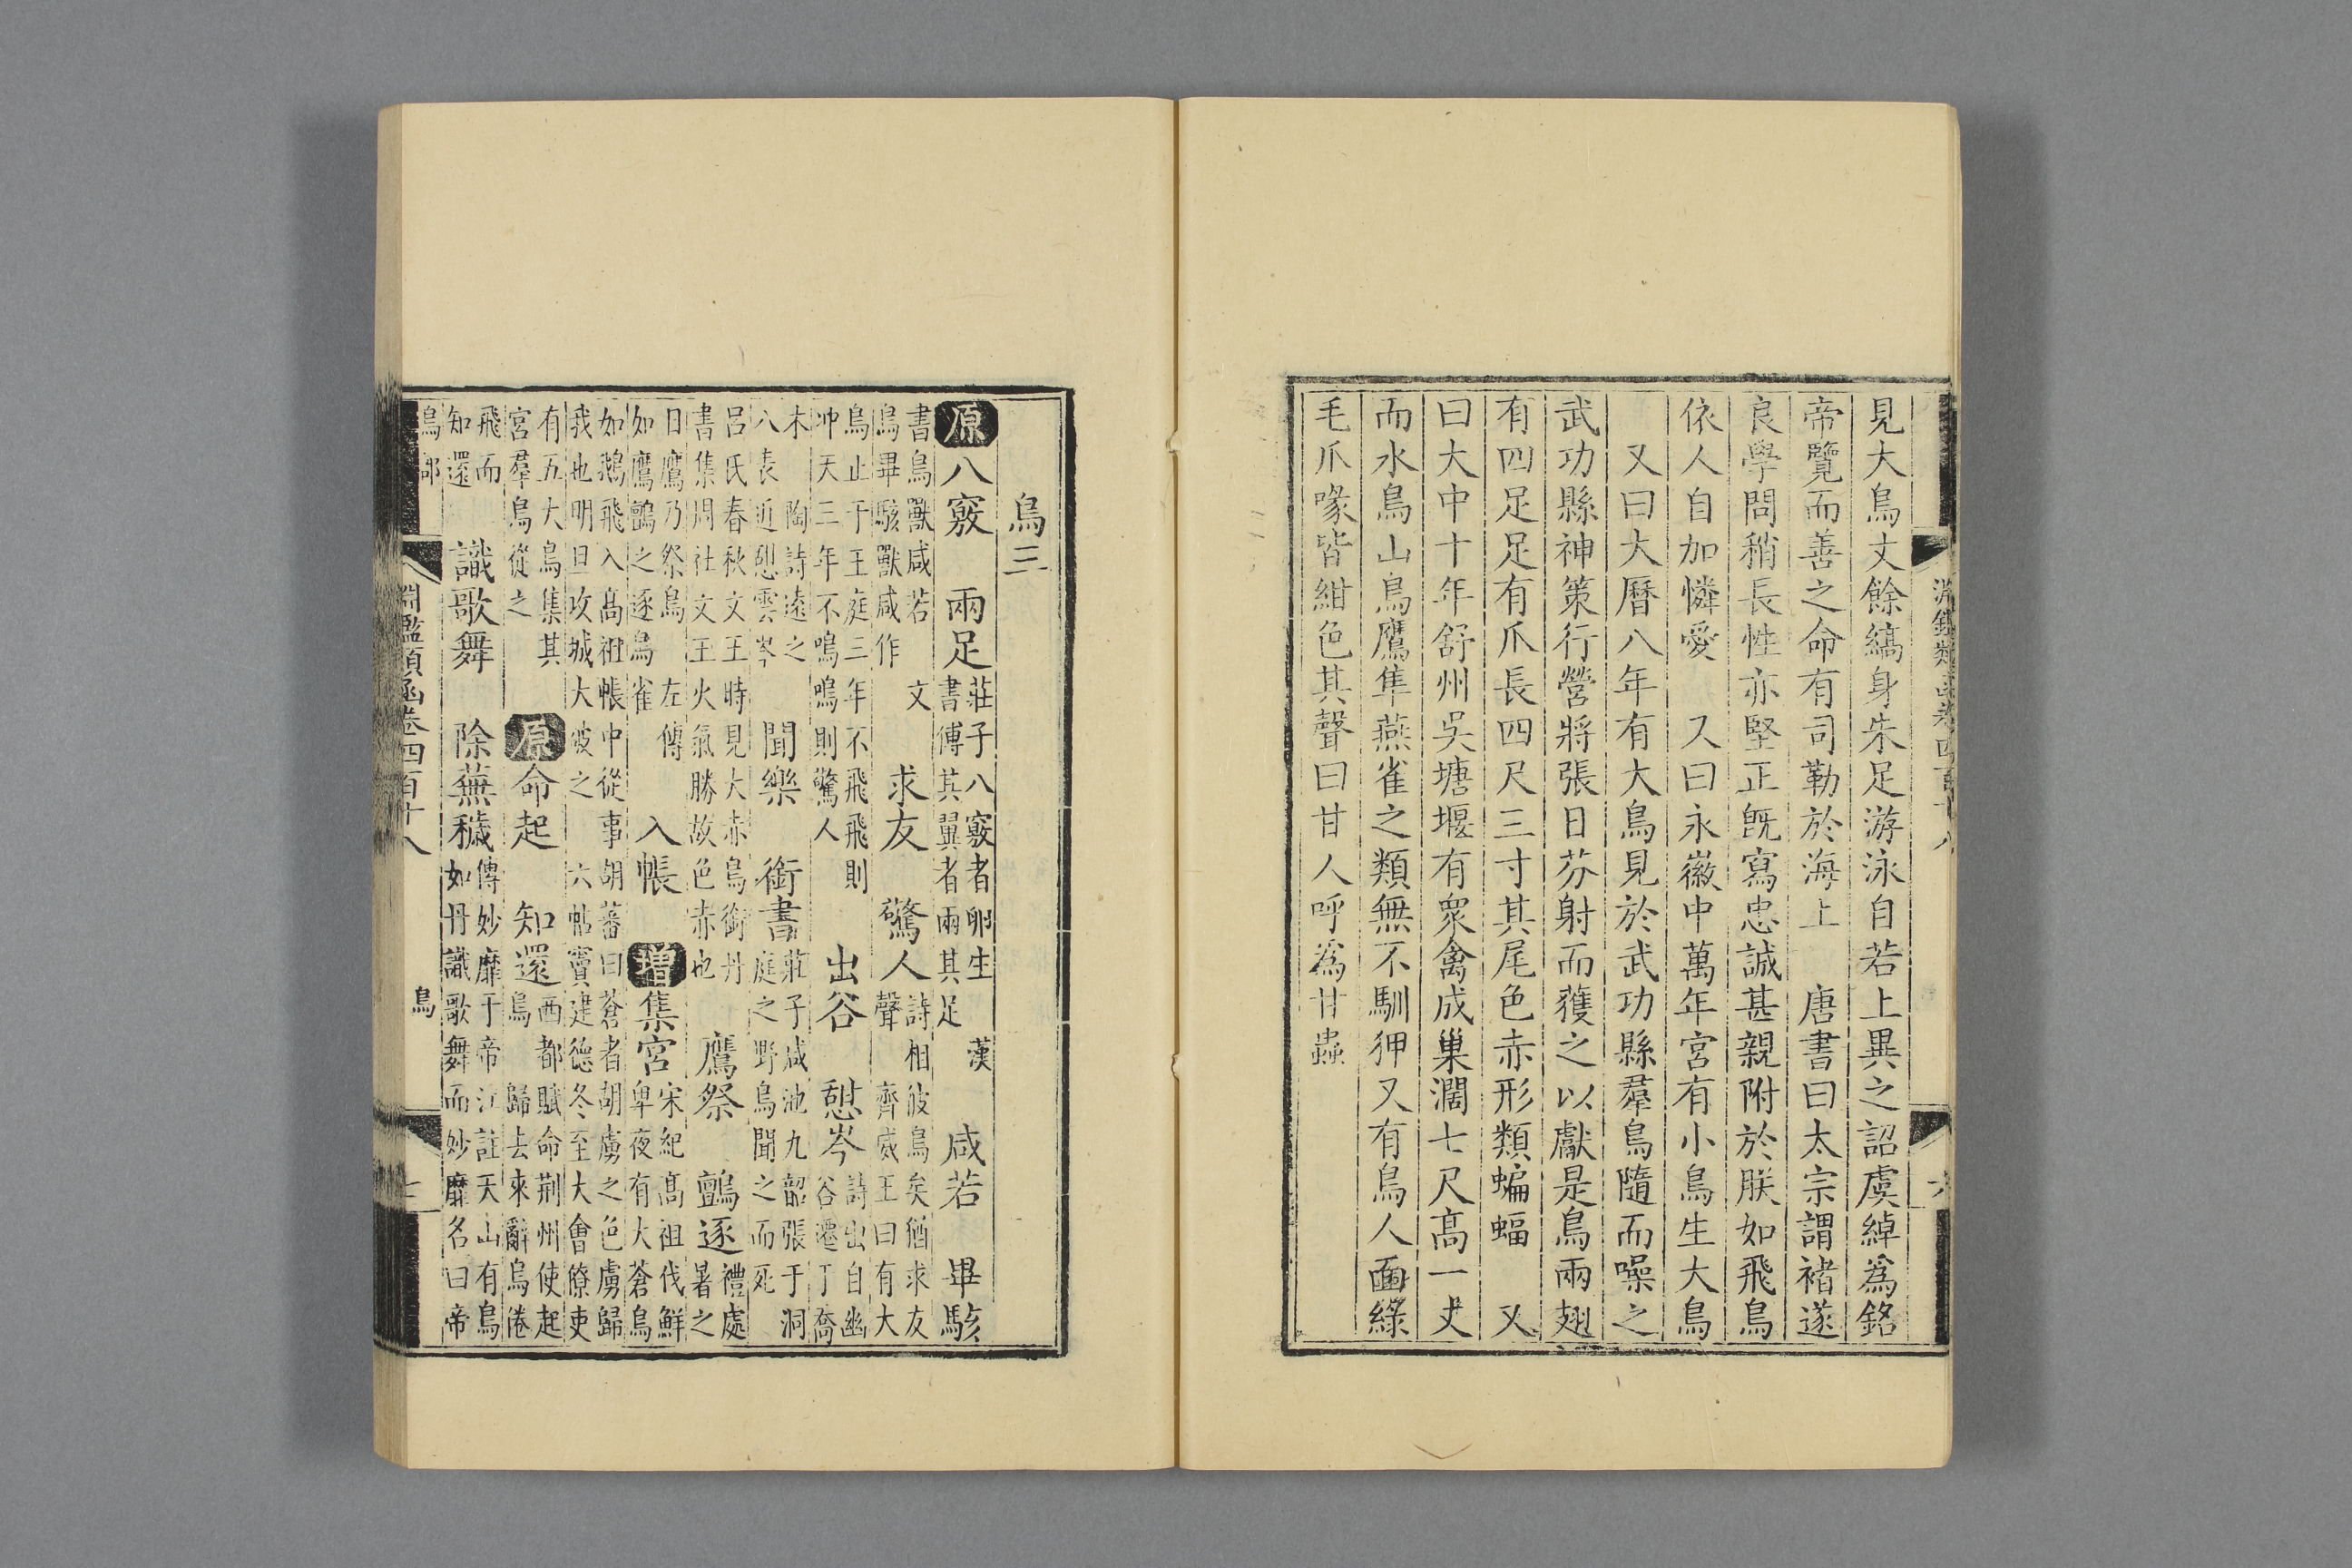 見大鳥丈餘縞身朱足游泳自若上異之詔虞綽為銘
帝覽而善之命有司勒於海上 唐書曰太宗謂褚遂
良學問稍長性亦堅正既寫忠誠甚親附於朕如飛鳥
依人自加憐愛 又曰永徽中萬年宮有小鳥生大鳥
又曰大曆八年有大鳥見於武功縣羣鳥隨而噪之
武功縣神策行營將張日芬射而獲之以獻是鳥兩翅
有四足足有爪長四尺三寸其尾色赤形類蝙蝠 又
曰大中十年舒州吳塘堰有衆禽成巢濶七尺高一丈
而水鳥山鳥鷹隼燕雀之類無不馴狎又有鳥人面綠
毛爪喙皆紺色其聲曰甘人呼為甘蟲
鳥三
原八竅 兩足 莊子八竅者卵生 漢
書傅其翼者兩其足 咸若 畢駭
書鳥獸咸若 文
鳥畢駭獸咸作 求友 驚人 詩相彼鳥矣猶求友
聲 齊威王曰有大
鳥止于王庭三年不飛飛則
冲天三年不鳴鳴則驚人 出谷 憩岑 詩出自幽
谷遷于喬
木 陶詩遠之
八表近憩雲岑 聞樂 銜書 莊子咸池九韶張于洞
庭之野鳥聞之而死
呂氏春秋文王時見大赤烏銜丹
書集周社文王火氣勝故色赤也 鷹祭 鸇逐 禮處
暑之
日鷹乃祭鳥 左傳
如鷹鸇之逐鳥雀 入帳 增集宮 宋紀高祖伐鮮
卑夜有大蒼鳥
如鵝飛入高祖帳中從事胡蕃曰蒼者胡虜之色虜歸
我也明旦攻城大破之 六帖竇建德冬至大會僚吏
有五大鳥集其
宮羣鳥從之 原命起 知還 西都賦命荆州使起
鳥 歸去來辭鳥倦
飛而
知還 識歌舞 除蕪穢 傅妙靡于帝江註天山有鳥
如丹識歌舞而妙靡名曰帝
鳥部 淵鑑類函卷四百十八 鳥 七